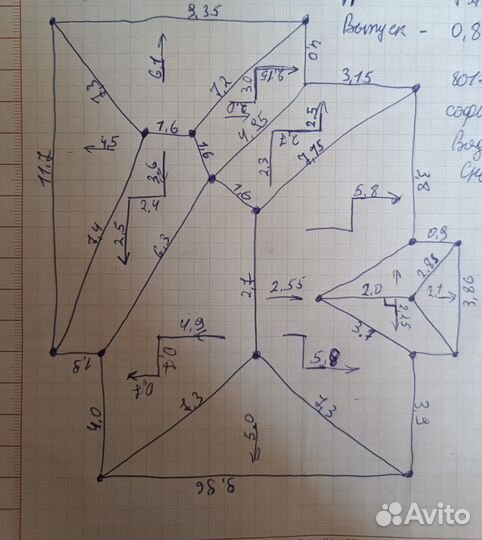 1м
Выпуск - 0,8
9.35
4.0
3,15
801
6.1
7.2
2.15
3.0
7.3
1,6
4.85
2.5
2.7
2.3
7,75
11.7
3.6
2.4
2.5
1.6
5.8
3,8
7.4
6.3
0.9
2.85
2,7
2.55
2.0
2.1
3,86
3.7
4.9
1.8
0.7
0.7
5.8
4.0
7.3
7.3
5.0
3.3
9.86
Avito